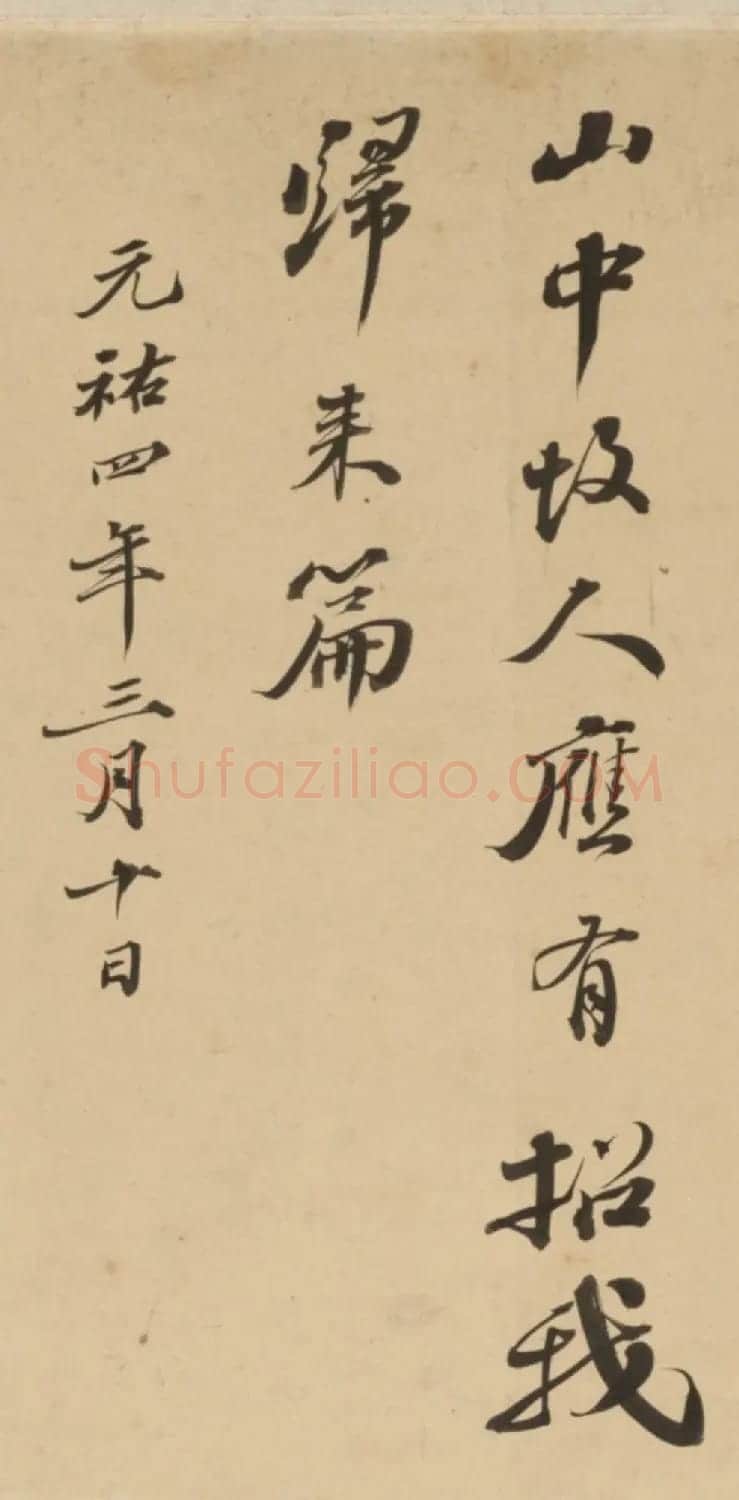 山中故人應有招我
歸来篇
元祐四年三月十日
Shufaziliao.COM